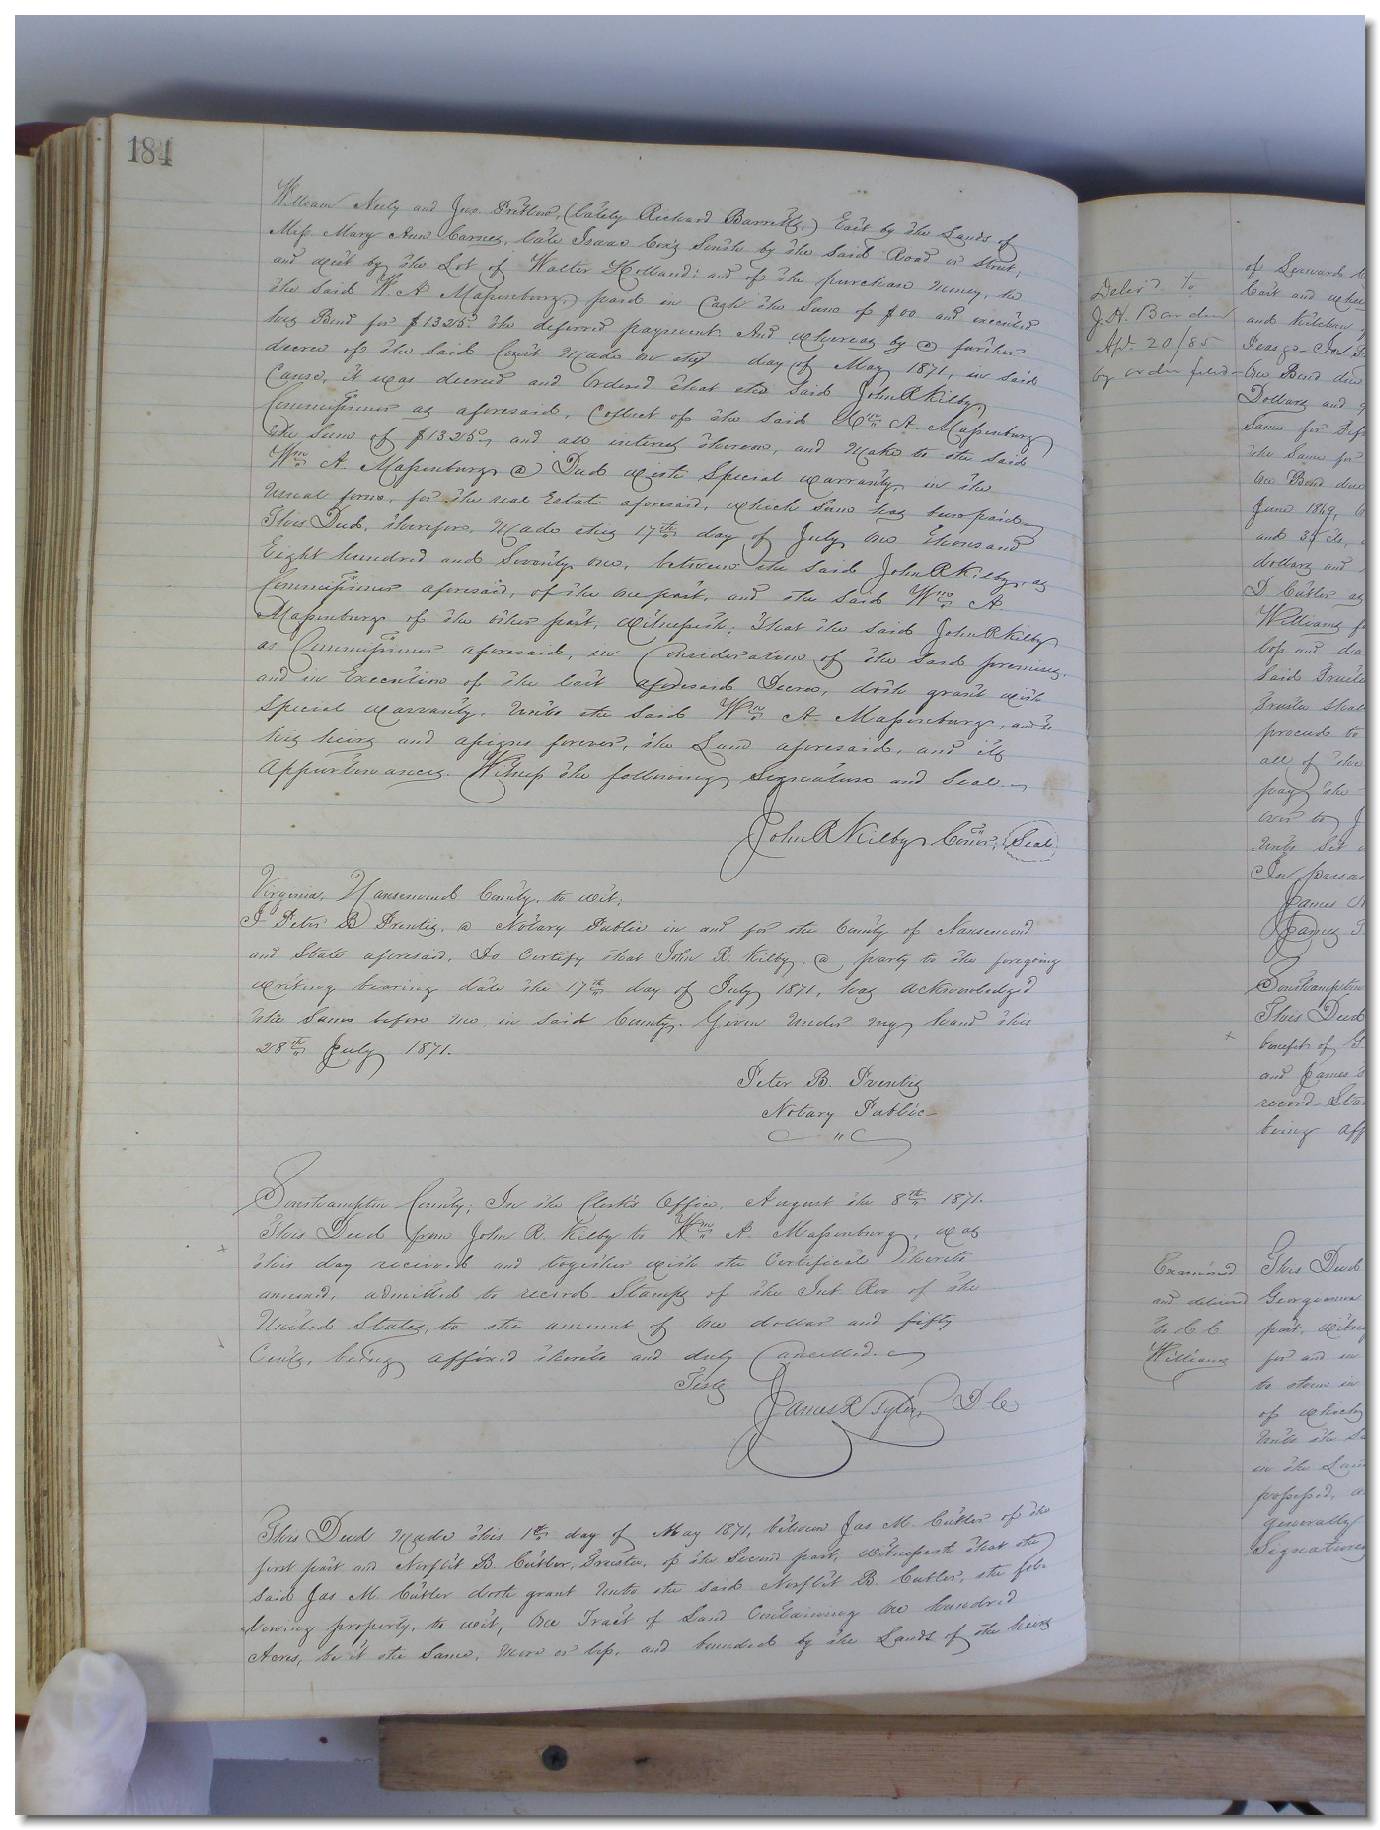 184
William Neely and Jno. Pretlow, (lately Richard Barretts,) East by the Lands of
Miss Mary Ann Carney, late Isaac Cox's South by the said Road or Street,
and West by the Lot of Walter Holland; and of the purchase money, the
the said W A Massenburg, paid in Cash the Sum of $ 00 and executed
his Bond for $1325.00 the deferred payment. And whereas by a further
decree of the said Court made on the day of May 1871, in said
Cause, it was decreed and Ordered that the said John R Kilby
Commissioner as aforesaid, Collect of the said Wm A. Massenburg
the Sum of $1325.00, and all interest thereon, and make to the said
Wm A. Massenburg a Deed with Special warranty, in the
usual form, for the real Estate aforesaid, which Sum has been paid—
This Deed, therefore, made this 17th day of July One thousand
Eight hundred and Seventy One, between the said John R Kilby, as
Commissioner aforesaid, of the one part, and the said Wm A
Massenburg of the other part, witnesseth; That the said John R Kilby
as Commissioner aforesaid, in Consideration of the said premises,
and in Execution of the last aforesaid Decree, doth grant with
Special warranty, Unto the said Wm A Massenburg, and to
his heirs and assigns forever, the Land aforesaid, and its
Appurtenances. Witness the following Signature and Seal—
John R Kilby Comr, Seal
Virginia, Nansemond County, to wit;
I Peter B Prentis, a Notary Public in and for the County of Nansemond
and State aforesaid, Do Certify that John R. Kilby, a party to the foregoing
writing bearing date the 17th day of July 1871, has acknowledged
the Same before me in said County. Given under my hand this
28th July 1871.
Peter B. Prentis
Notary Public—
Southampton County; In the Clerk's Office, August the 8th 1871.
This Deed from John R. Kilby to Wm A. Massenburg, was
this day received and together with the Certificate thereto
annexed, admitted to record. Stamps of the Int Rev of the
United States, to the amount of One dollar and fifty
Cents, being affixed thereto and duly Cancelled.
Teste
James R Tyler, D C
This Deed made this 1st day of May 1871, between Jas M. Cutler of the
first part and Norflet B. Cutler, Trustee, of the Second part, witnesseth that the
said Jas M. Cutler doth grant unto the said Norflet B. Cutler, the fol-
lowing property, to wit, One Tract of Land Containing One hundred
Acres, be it the Same, more or less, and bounded by the Lands of the heirs
Deliv'd to
J.A. Barden
Apl. 20/85
by order filed—
of Seward
East and
and Kitchen
One Bond due
Dollars and
Same for
the Same for
One Bond due
June 1869,
and
dollars and
D Cutler as
Williams
loss and
said Truste
Trustee shal
proceed to
all of the
pay the
over to J
Unto
In
James
James
Southampton
This Deed
benefit of
and James
record Sta
being aff
Examined
and delivered
to C C
Williams
This Deed
Georgeanna
part, witnes
for and in
to them in
of which
Unto the
in the
possessed,
generally
Signatures